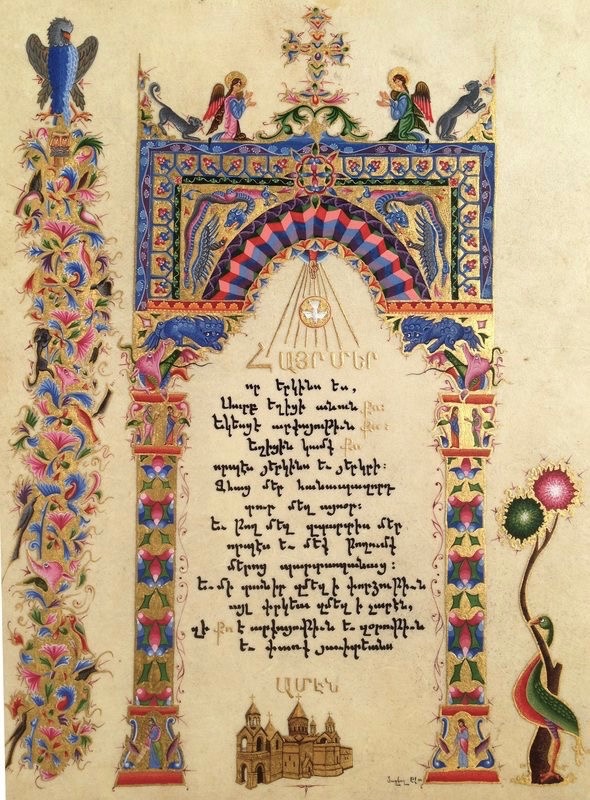 ՀԱՅՐ ՄԵՐ
որ երկինս ես,
Սուրբ եղիցի անուն քո:
Եկեսցէ արքայութիւն քո:
Եղիցին կամք քո
որպէս յերկինս եւ յերկրի:
Զհաց մեր հանապազորդ
տուր մեզ այսօր:
եւ թող մեզ զպարտիս մեր
որպէս եւ մեք թողումք
մերոց պարտապանաց:
եւ մի տանիր զմեզ ի փորձութիւն
այլ փրկեա զմեզ ի չարէն,
զի քո է արքայութիւն եւ զօրութիւն
եւ փառք յաւիտեանս
ԱՄԷՆ